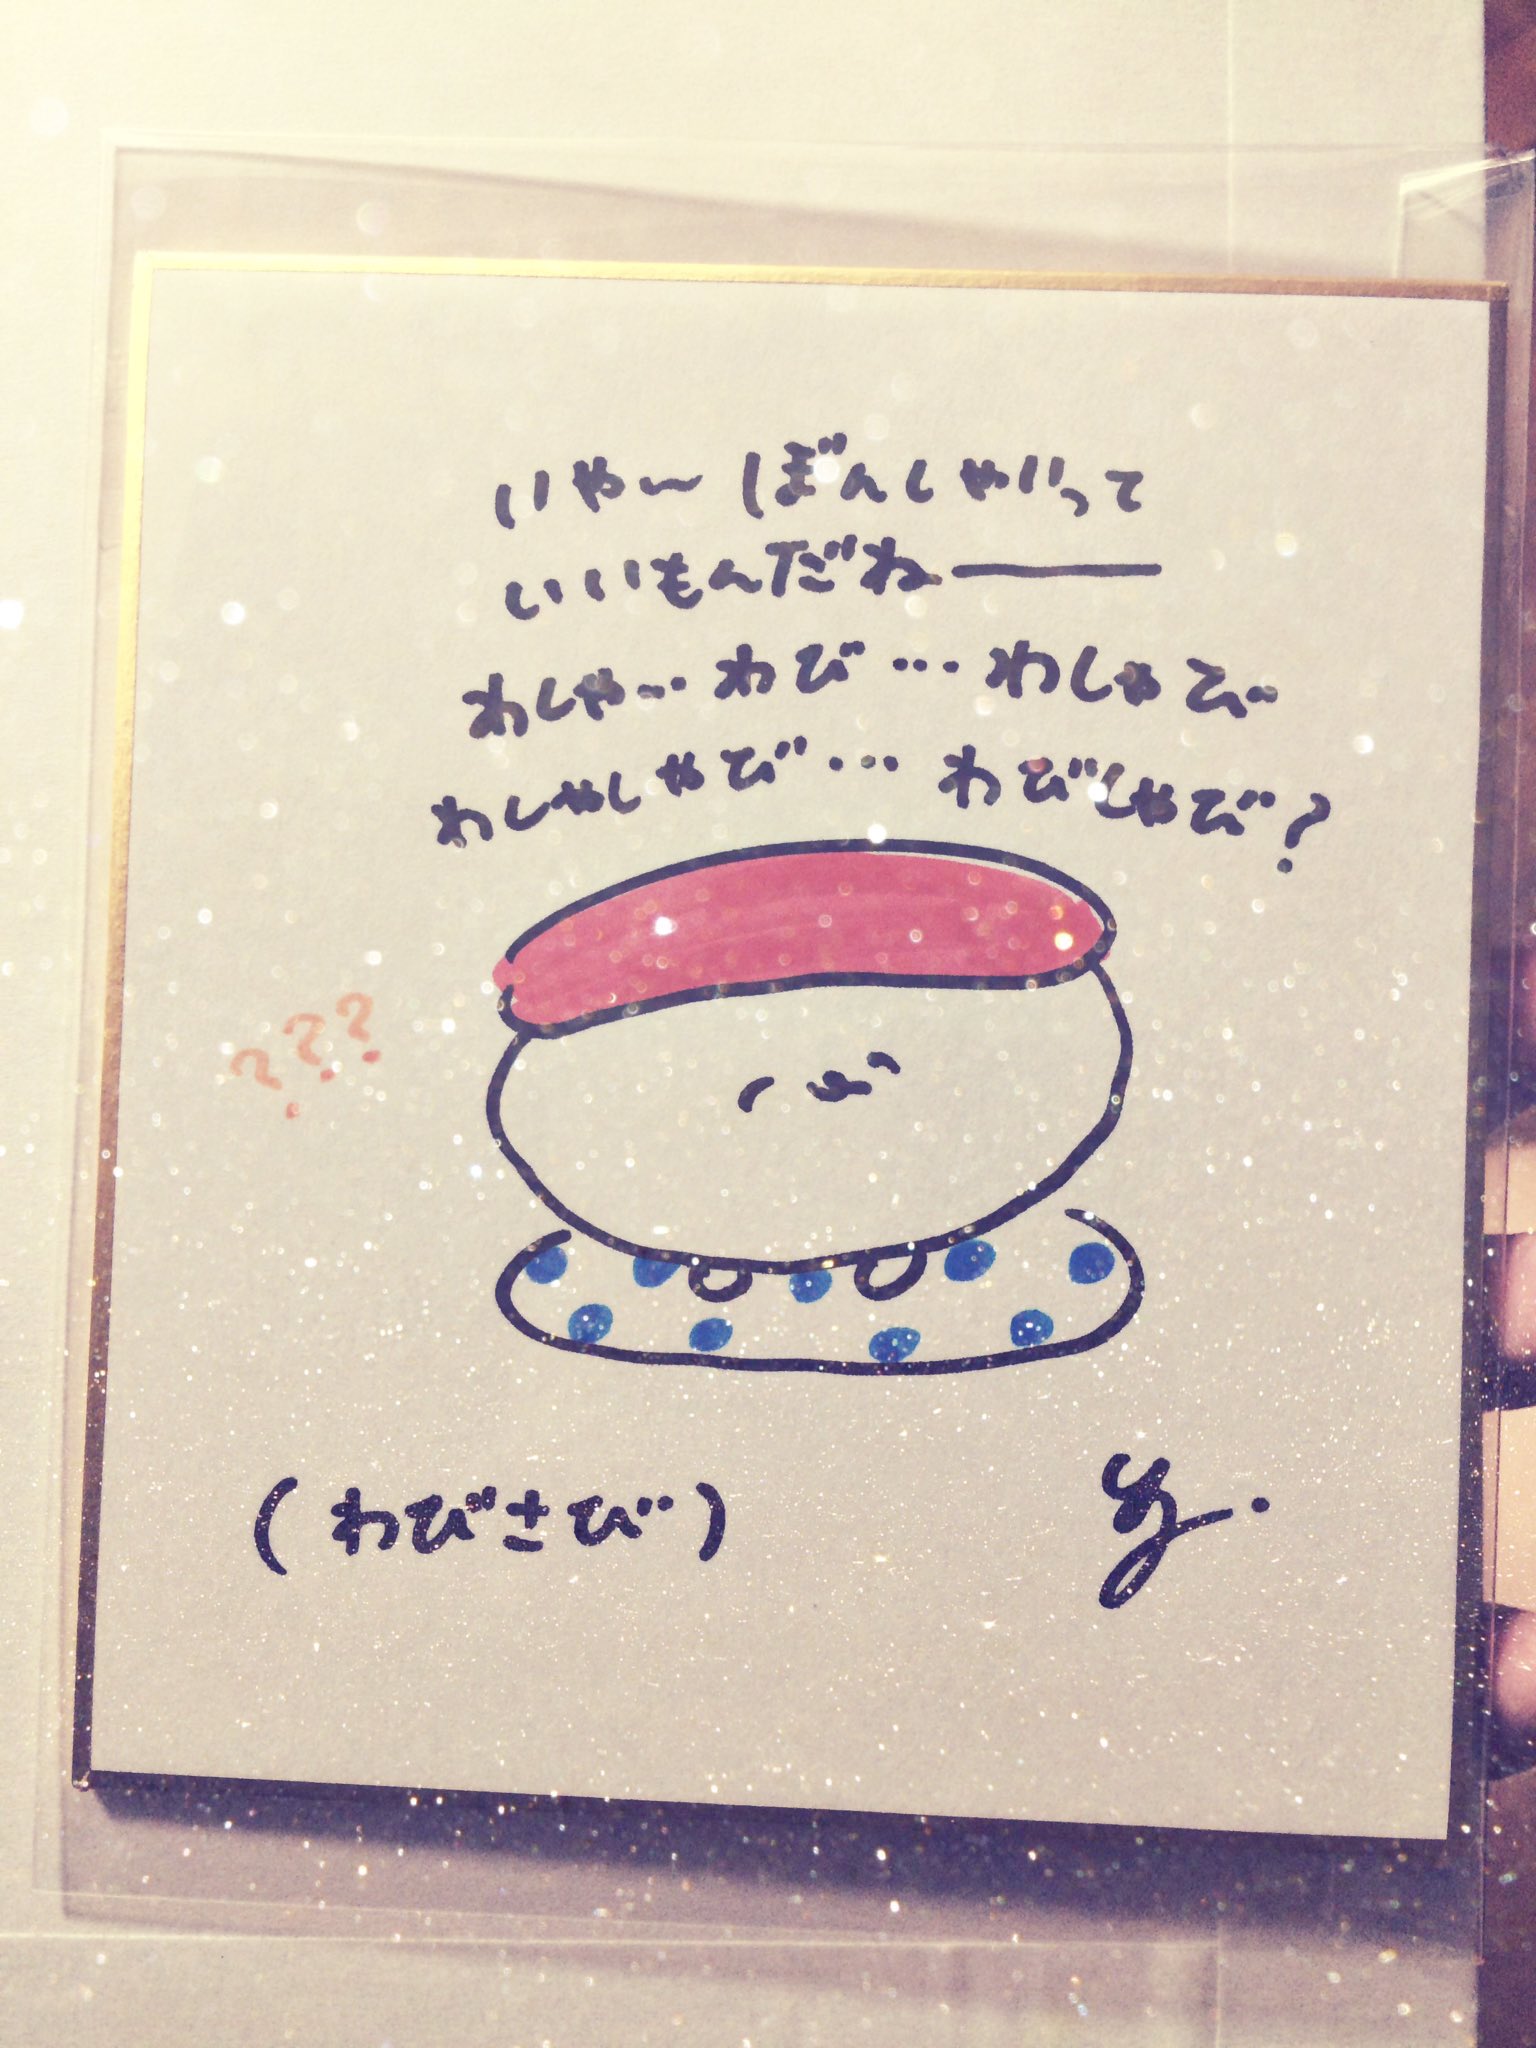 いや〜ぼんしゃいって
いいもんだね――
わしゃ…わび…わしゃび
わしゃしゃび…わびしゃび?
???
(わびさび)